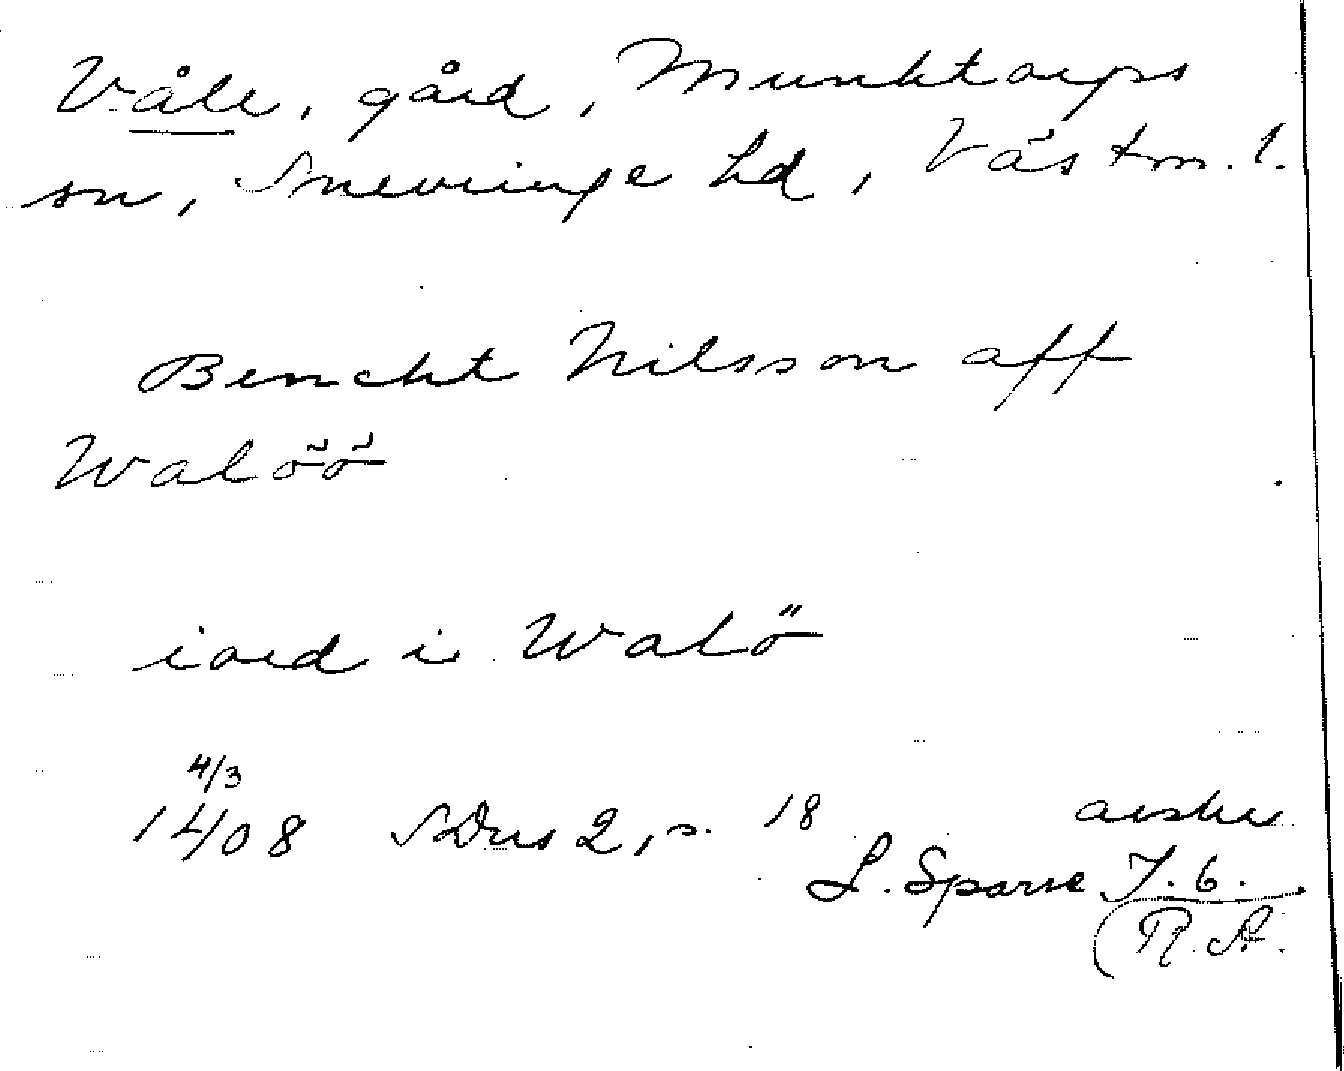 Våle, gård, Munktorps
sn, Snevringe hd, Västm. l.
Bencht Nilsson aff
Walöö
iord i Walö
4/3
1408 SDns 2, s. 18 avskr.
L. Sparre T. 6.
(R. A.